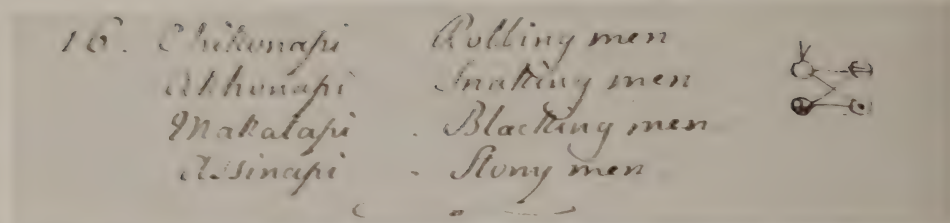 16. Chikonapi Rolling men
Akhonapi Snaking men
Makatapi . Blacking men
Assinapi - Stony men